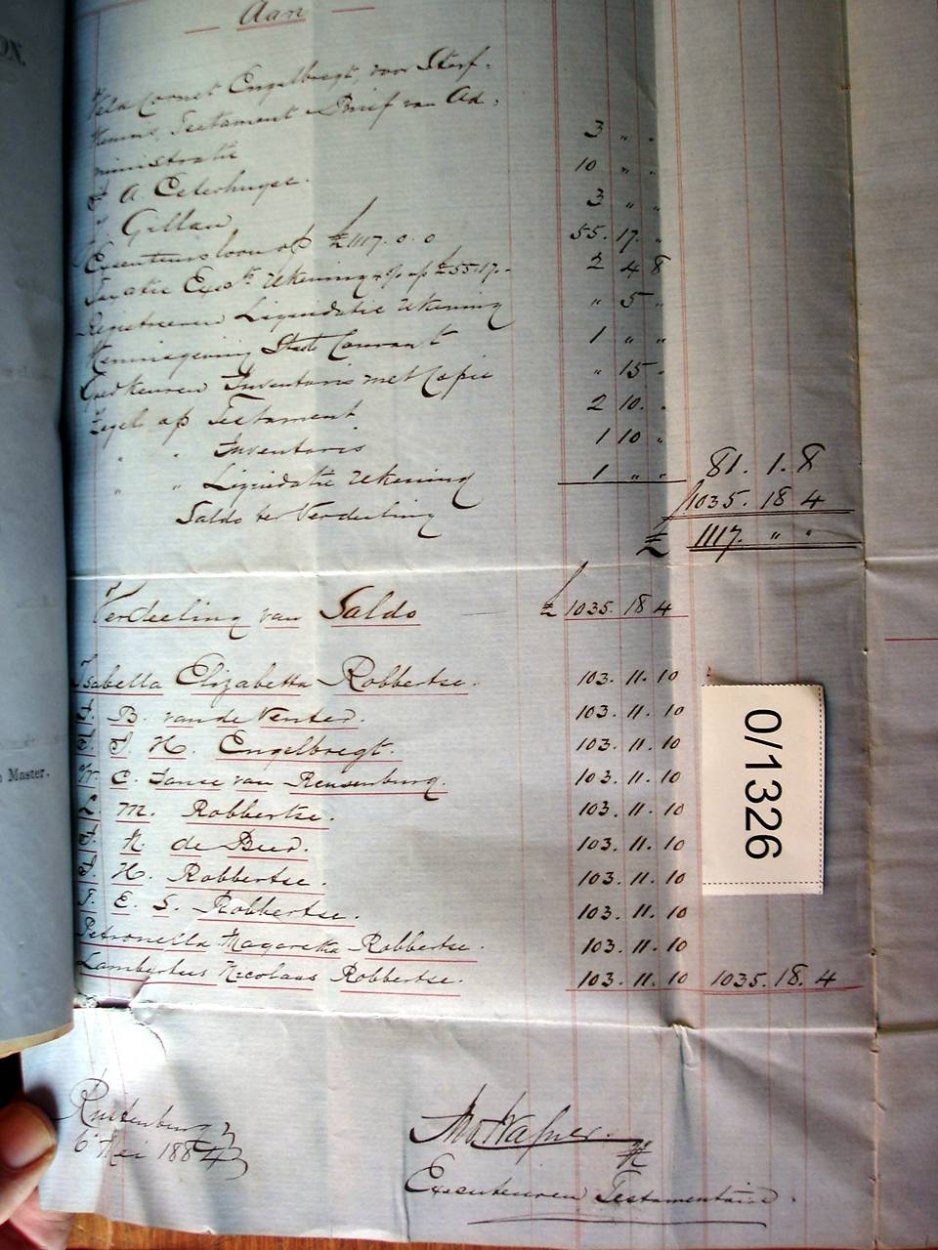 ON.
Aan
Veld Cornet Engelbregt, voor Sterf-
kennis, Testament & Brief van Ad-
ministratie 3 " "
A. Eeterhuyse. 10 " "
Gillan 3 " "
Executeursloon op £1117.0.0 55. 17. "
Taxatie Exec. rekening op £55.17.- 2 4 8
Registreeren Liquidatie rekening " 5 "
Kennisgeving Staats Courant 1 " "
Goedkeuren Inventaris met Copie " 15 "
Zegel op Testament 2 10. "
" " Inventaris 1 10 "
" " Liquidatie rekening 1 " " 81. 1. 8
Saldo ter Verdeeling 1035. 18 4
£ 1117. " "
Verdeeling van Saldo £ 1035. 18 4
Isabella Elizabetha Robbertse. 103. 11. 10
B. van de Venter. 103. 11. 10
H. Engelbregt. 103. 11. 10
C. Janse van Rensenburg. 103. 11. 10
M. Robbertse. 103. 11. 10
N de Beer. 103. 11. 10
H. Robbertse. 103. 11. 10
E. S. Robbertse. 103. 11. 10
Petronella Magaretha Robbertse. 103. 11. 10
Lambertus Nicolaas Robbertse. 103. 11. 10 1035. 18. 4
0/1326
Master.
Rustenburg,
6 Mei 1884
Executeuren Testamentair.